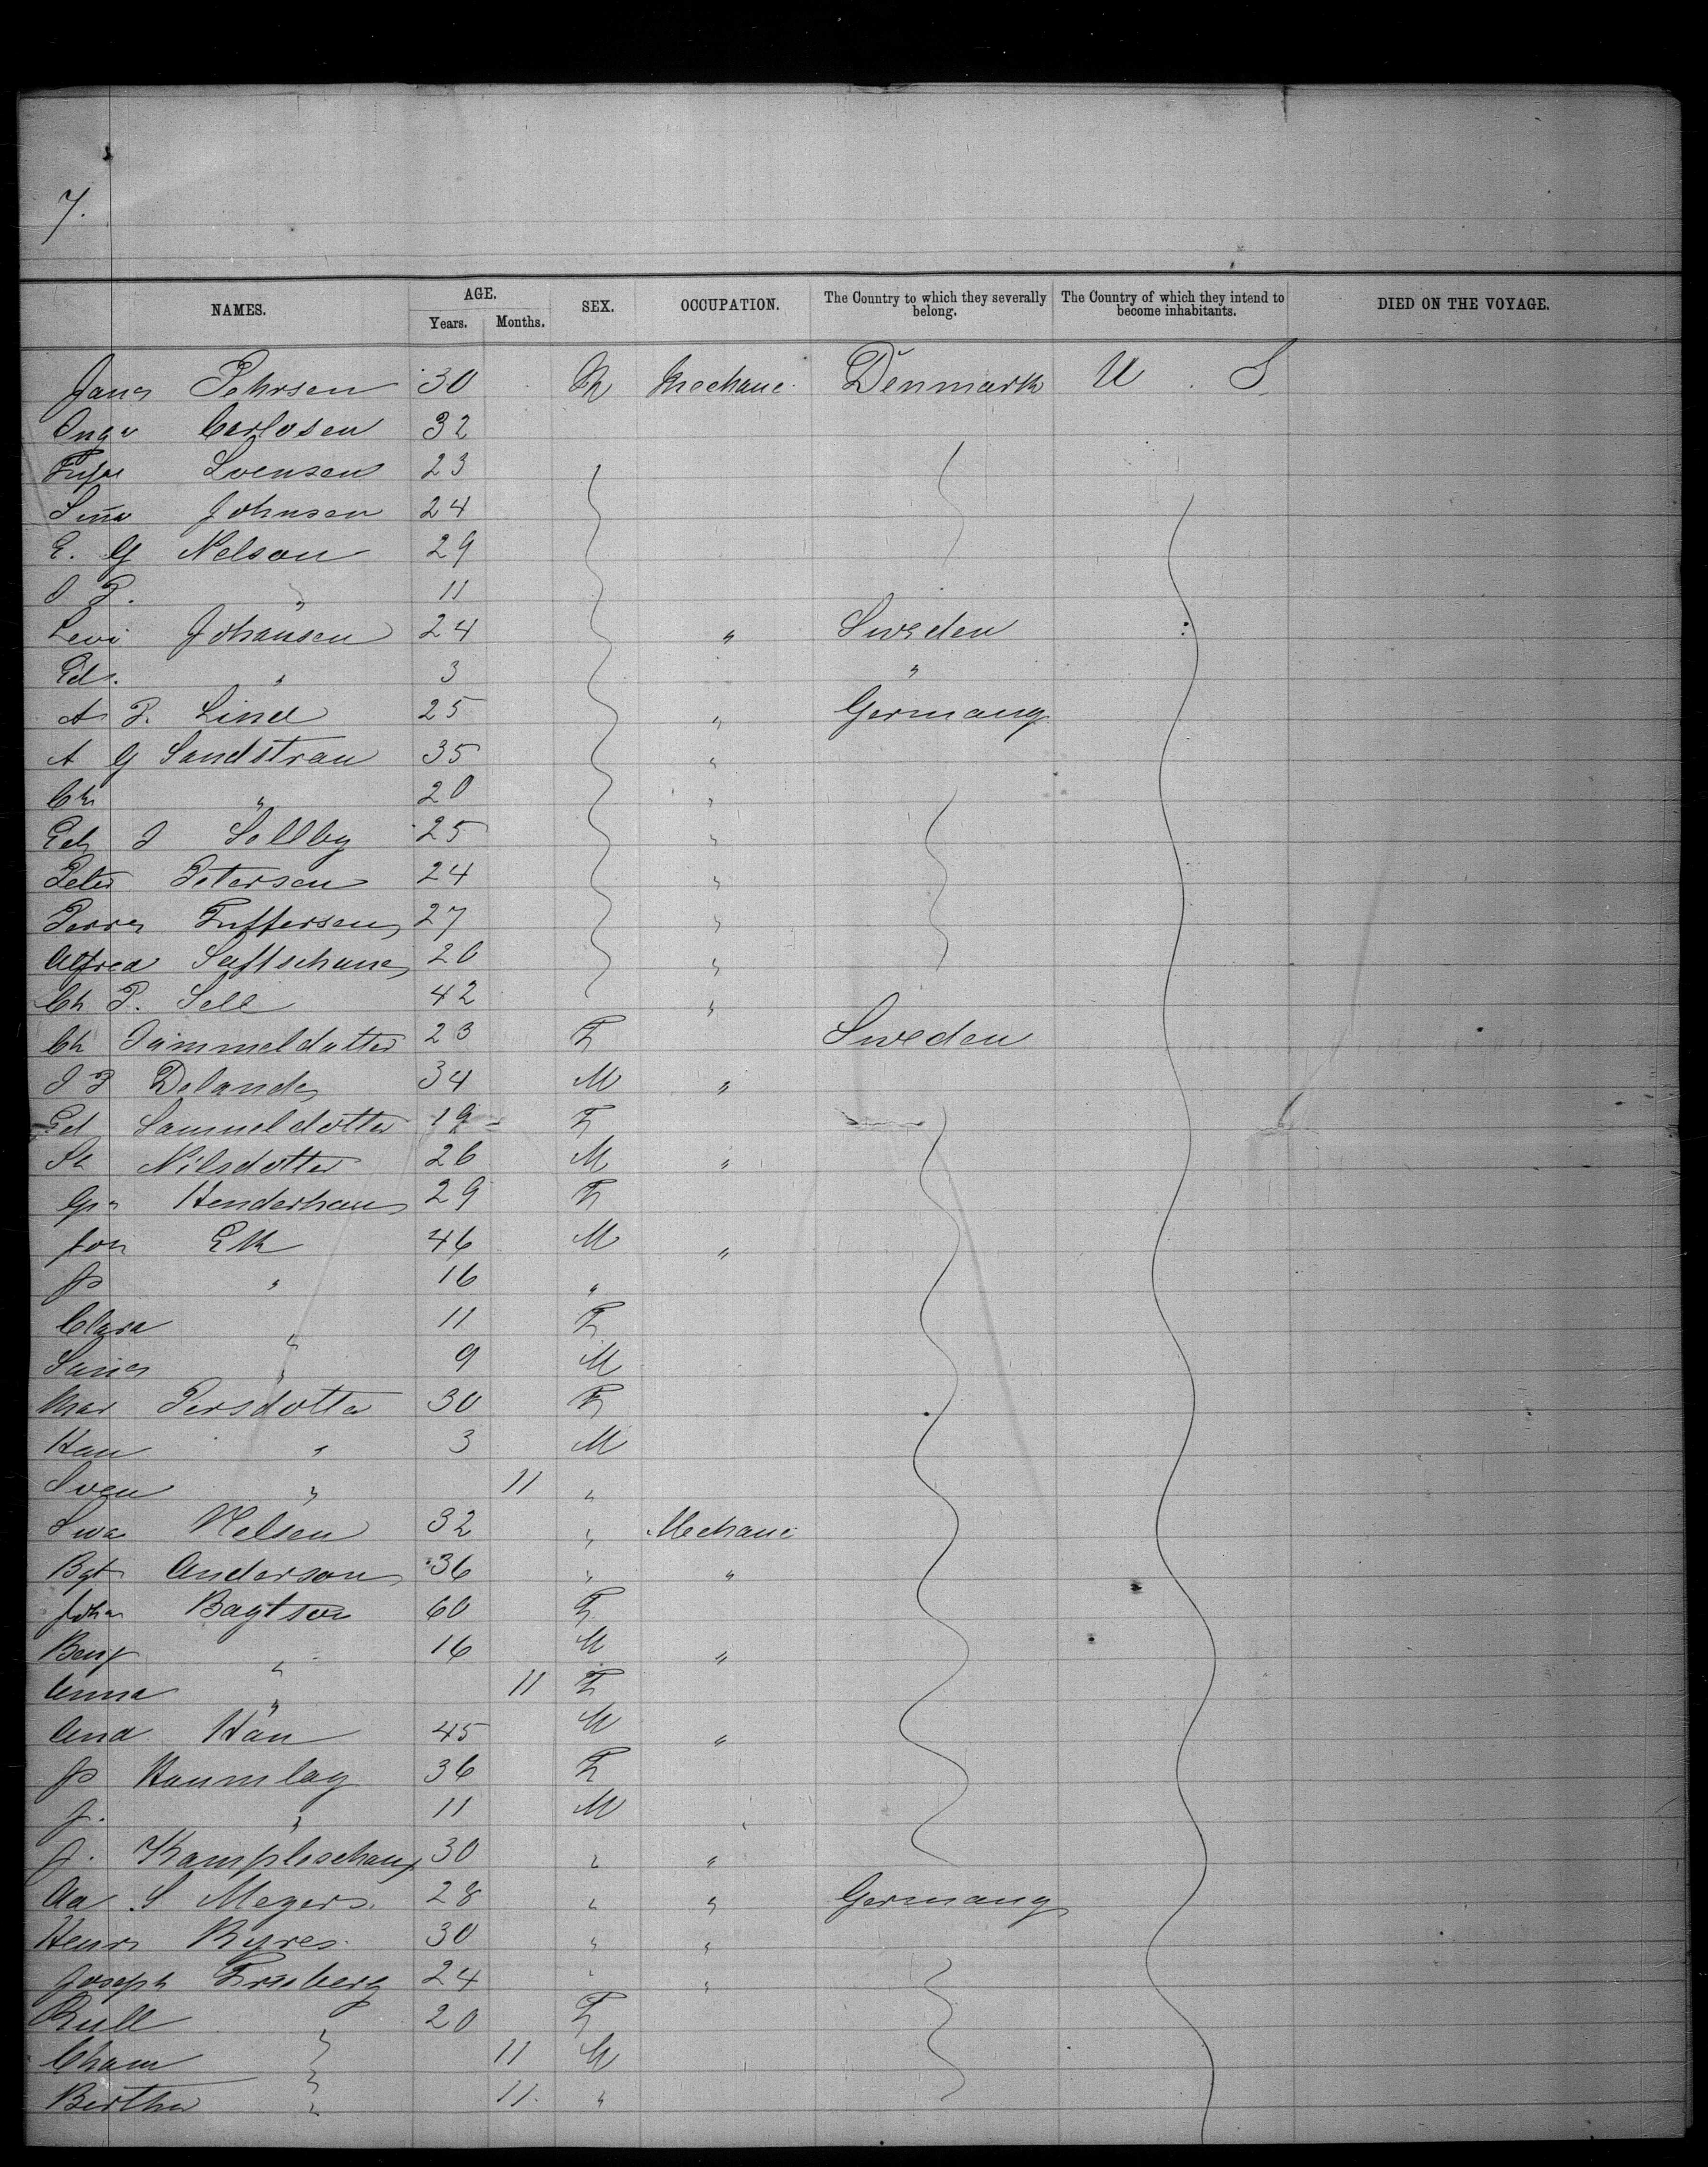 7.
NAMES. AGE. Years. Months. SEX. OCCUPATION. The Country to which they severally belong. The Country of which they intend to become inhabitants. DIED ON THE VOYAGE.
Pehrsen 30 M Mechanc Denmark U. S
Inga Carlosen 32
Svensen 23
Johnsen 24
E. G Nelson 29
J P. " 11
Levi Johansen 24 " Sweden
Ed. " 3 "
A P. Lind 25 " Germany
A G Sandstran 35 "
Ch " 20 "
Ed J Sellby 25 "
Peter Petersen 24 "
Fuffersen 27 "
Alfred 20 "
Ch P. Sell 42 "
Ch Sammeldotter 23 F Sweden
J P Delander 34 M "
Ed Sammeldotter 19 F
St Nilsdotter 26 M "
Henderhan 29 F
Jon Ek 46 M "
Jo " 16 "
Clara " 11 F
" 9 M
Mar Persdotter 30 F
Han " 3 M
Sven " 11 "
Swa Nelsen 32 " Mechanc
Bgt Anderson 36 " "
Joha Bagtson 60 F
Beng " 16 M "
Anna " 11 F
And Han 45 M "
Jo Haumlag 36 F
J. " 11 M
J. Kampleschau 30 " "
Aa S Meyers. 28 " " Germany
Henr Kyres. 30 " "
Joseph Frieberg 24 " "
Rull " 20 F
Cham " 11 M
Bertha " 11. "